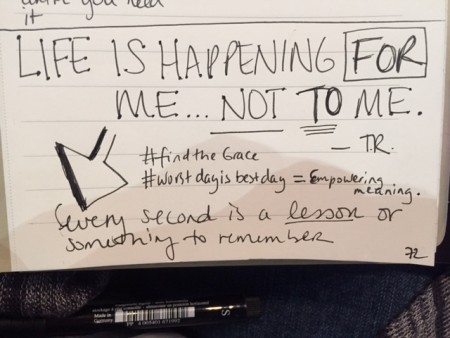 you need
it
LIFE IS HAPPENING FOR
ME... NOT TO ME.
— T.R.
#findtheGrace
#worstdayisbestday = Empowering
meaning.
every second is a lesson or
something to remember
72
Made in
Germany
S